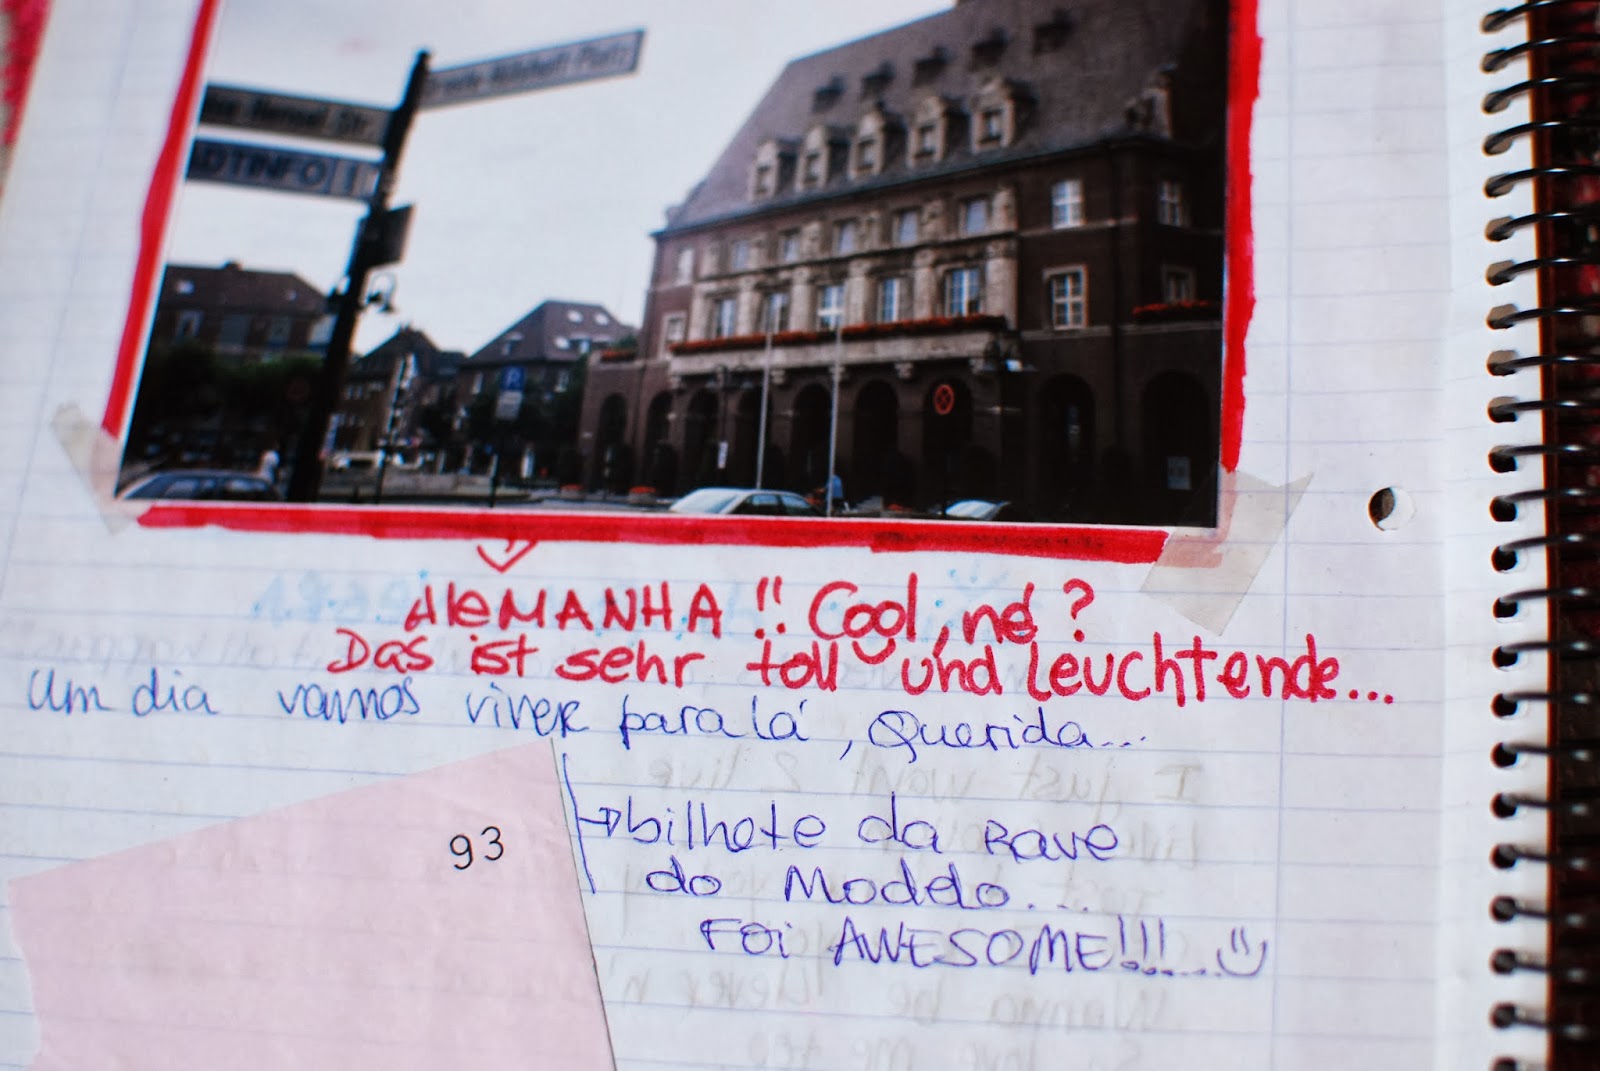 Str.
Platz
STADTINFO i
P
ALEMANHA!! Cool, né?
Das ist sehr toll und leuchtende...
Um dia vamos viver para lá, Querida...
93
bilhete da Rave
do Modelo....
FOI AWESOME!!!....
I just want 2 live